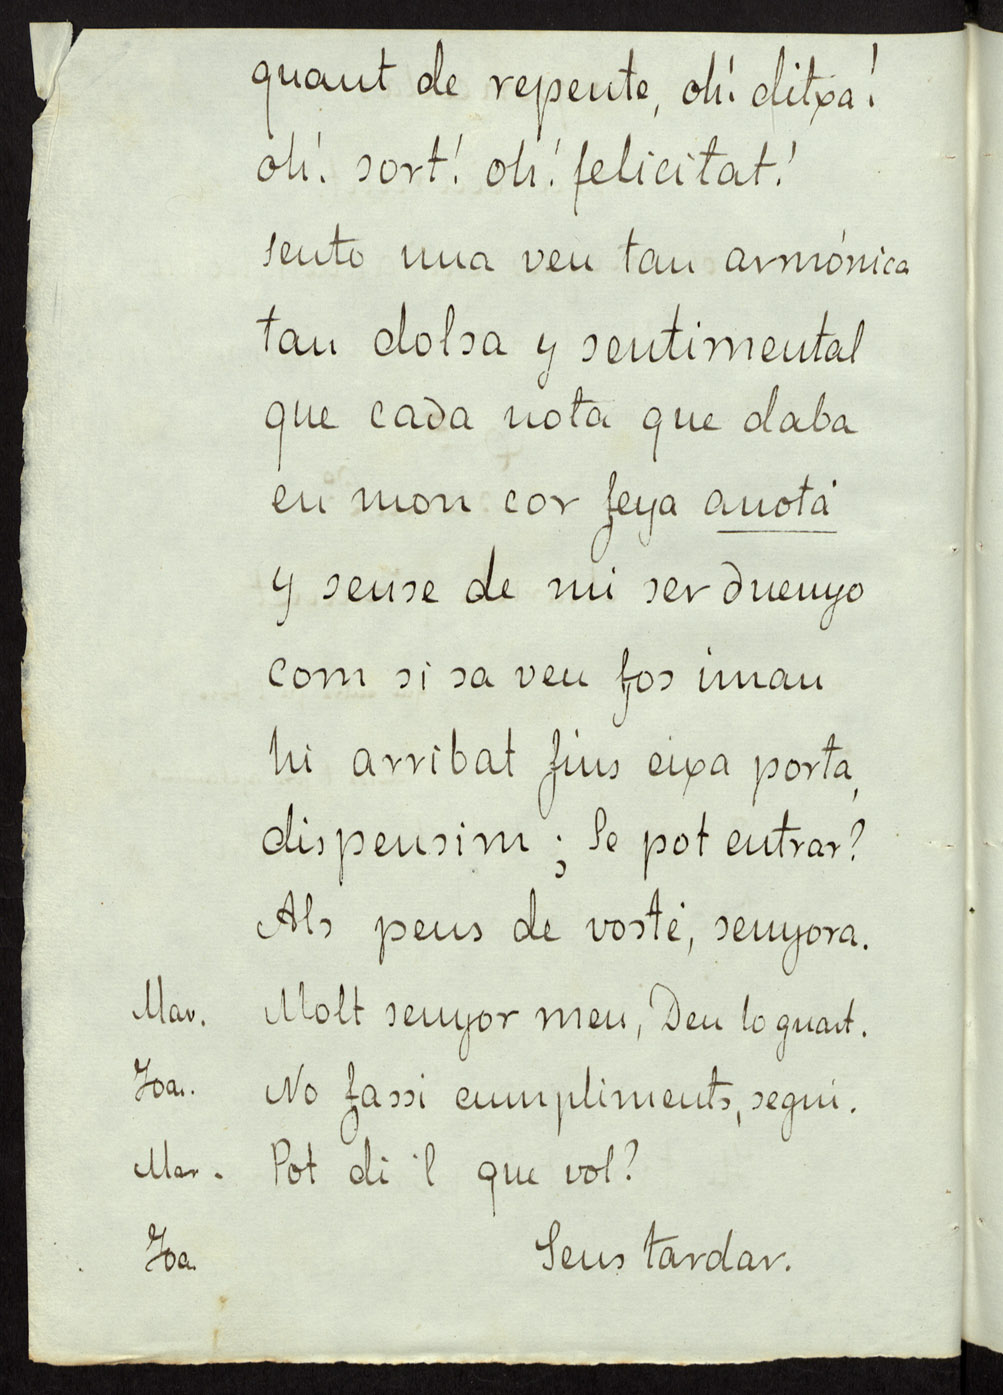 quant de repente, oh! ditxa!
oh! sort! oh! felicitat!
sento una veu tan armónica
tan dolsa y sentimental
que cada nota que daba
en mon cor feya anotá
y sense de mi ser duenyo
com si sa veu fos iman
hi arribat fins eixa porta,
dispensim ¿Se pot entrar?
Als peus de vosté, senyora.
Mar. Molt senyor meu, Deu lo guart.
Joa. No fassi cumpliments, segui.
Mar. Pot di 'l que vol?
Joa. Sens tardar.